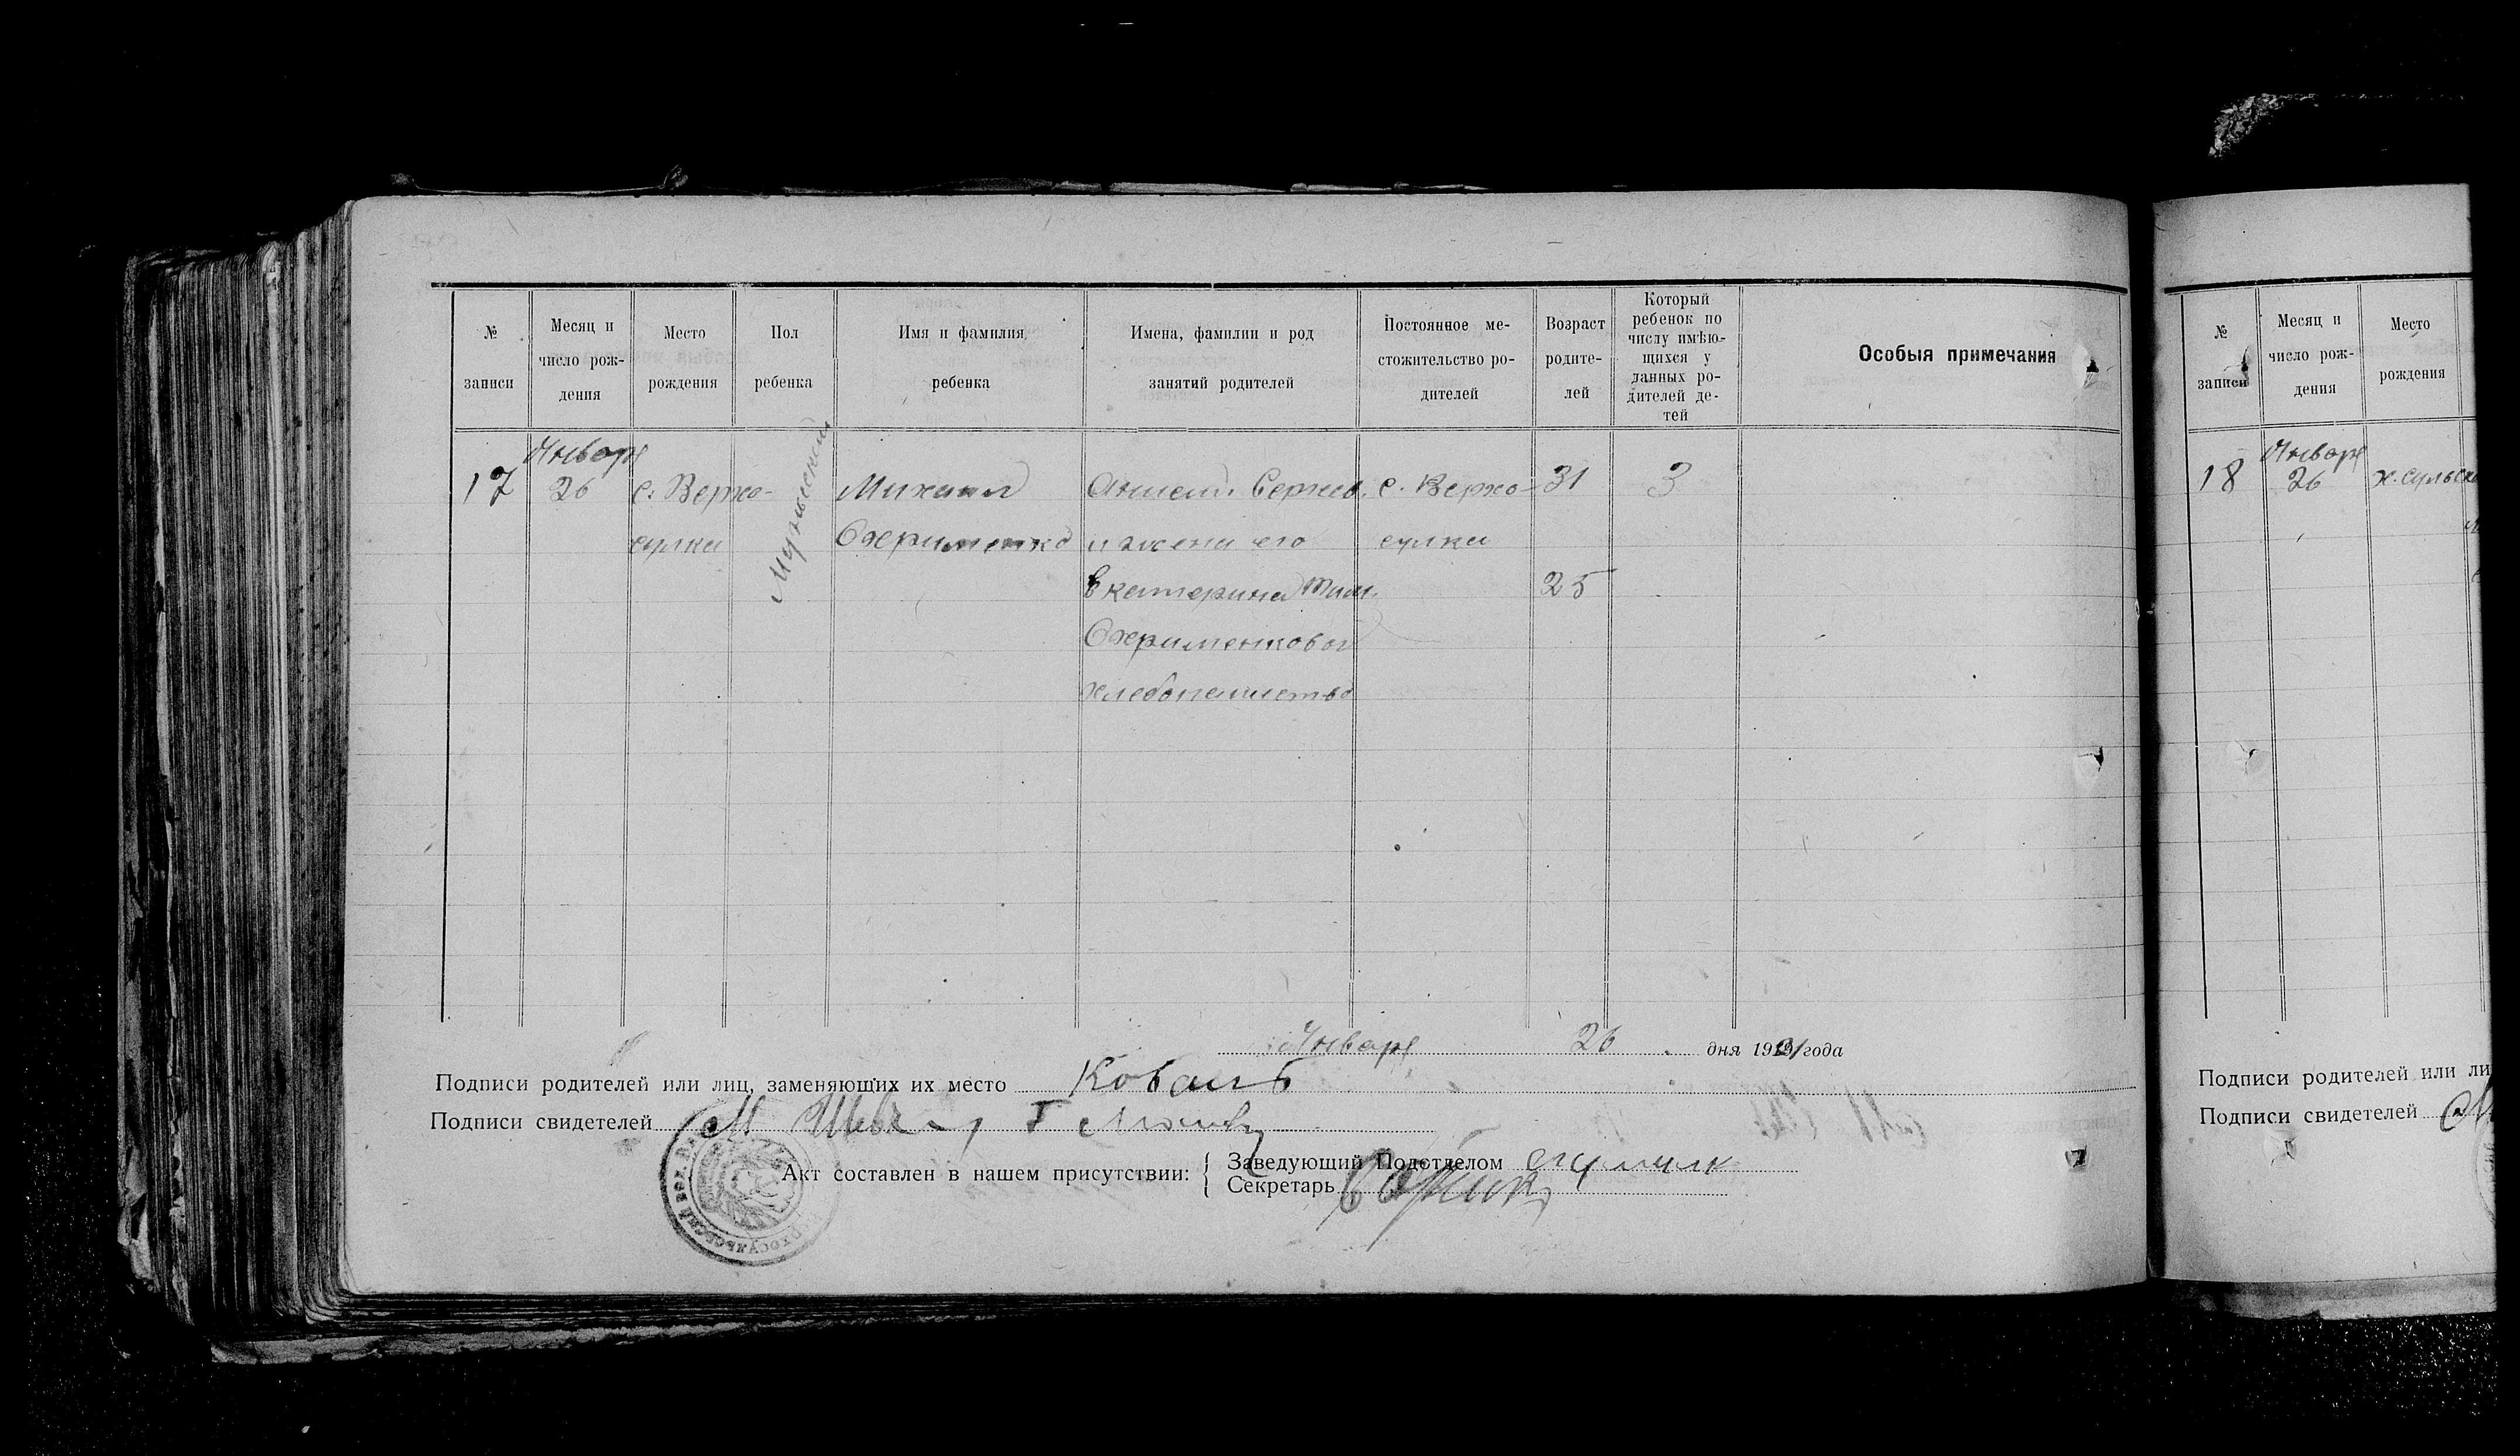 № записи
Месяц и число рож-дения
Место рождения
Пол ребенка
Имя и фамилия ребенка
Имена, фамилии и род занятий родителей
Постоянное ме-стожительство ро-дителей
Возраст родите-лей
Который ребенок по числу имѣю-щихся у данных ро-дителей де-тей
Особыя примечания
17
Января 26
с. Верхо-
сулка
Мужский
Михаил
Охрименко
Сергеев.
и жена его
Екатерина Тим.
Охрименковы
хлебопашество
с. Верхо-
сулка
31
25
3
Января 26 дня 1921 года
Подписи родителей или лиц, заменяющих их место Коваль
Подписи свидетелей М
Акт составлен в нашем присутствии:
Заведующий Подотделом
Секретарь
№ записи
Месяц и число рож-дения
Место рождения
18
Января 26
Подписи родителей или ли
Подписи свидетелей